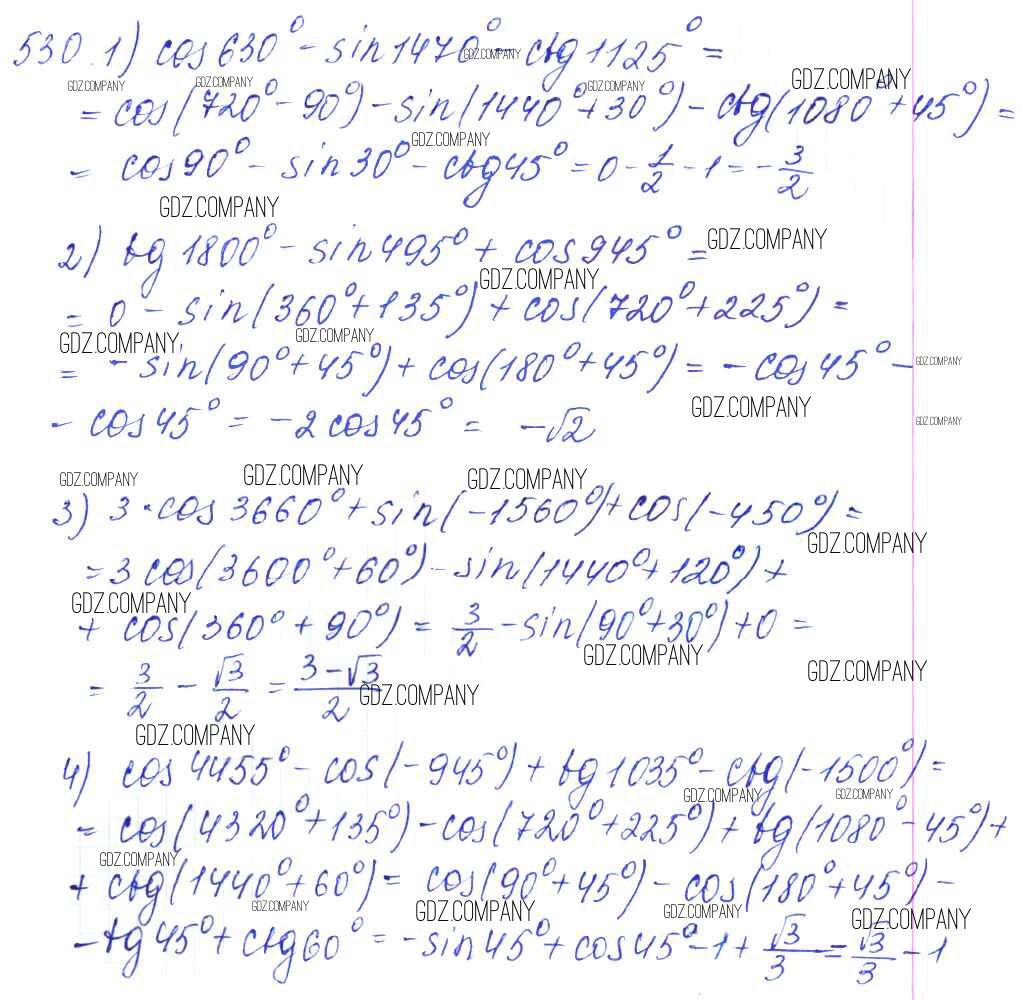 530. 1) cos 630° - sin 1470° - ctg 1125° =
= cos(720° - 90°) - sin(1440° + 30°) - ctg(1080° + 45°) =
= cos 90° - sin 30° - ctg 45° = 0 - 1/2 - 1 = - 3/2
2) tg 1800° - sin 495° + cos 945° =
= 0 - sin(360° + 135°) + cos(720° + 225°) =
= - sin(90° + 45°) + cos(180° + 45°) = - cos 45° -
- cos 45° = -2 cos 45° = -√2
3) 3 · cos 3660° + sin(-1560°) + cos(-450°) =
= 3 cos(3600° + 60°) - sin(1440° + 120°) +
+ cos(360° + 90°) = 3/2 - sin(90° + 30°) + 0 =
= 3/2 - √3/2 = (3 - √3)/2
4) cos 4455° - cos(-945°) + tg 1035° - ctg(-1500°) =
= cos(4320° + 135°) - cos(720° + 225°) + tg(1080° - 45°) +
+ ctg(1440° + 60°) = cos(90° + 45°) - cos(180° + 45°) -
- tg 45° + ctg 60° = - sin 45° + cos 45° - 1 + √3/3 = √3/3 - 1
GDZ.COMPANY